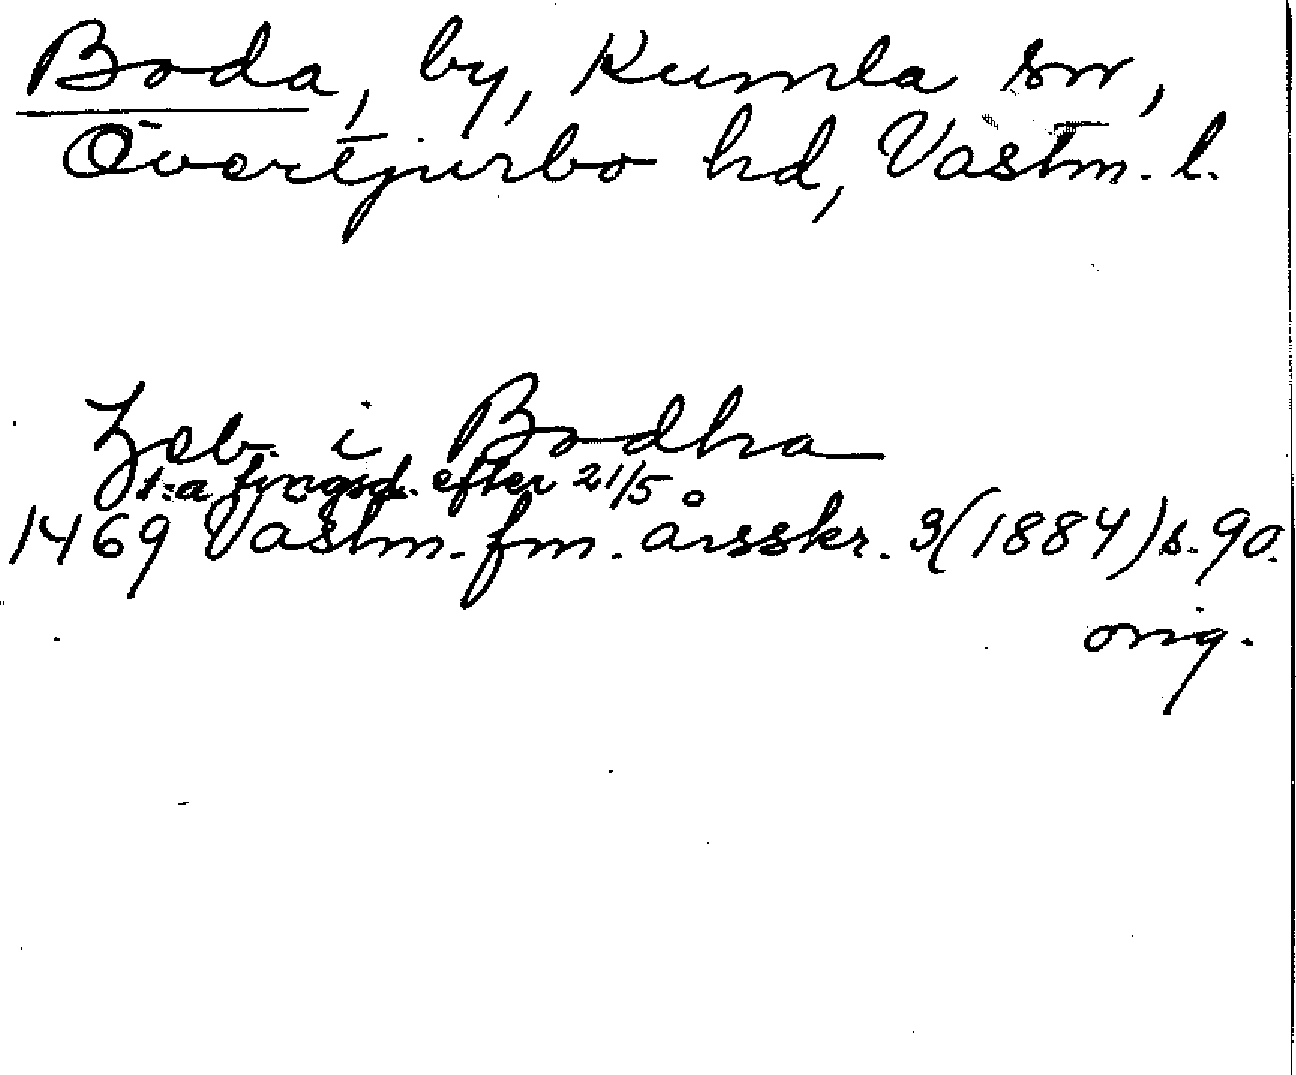 Boda, by, Kumla sn,
Övertjurbo hd, Västm. l.
i Bodha
1:a efter 21/5
1469 Västm. fm. årsskr. 3 (1884) s. 90.
orig.